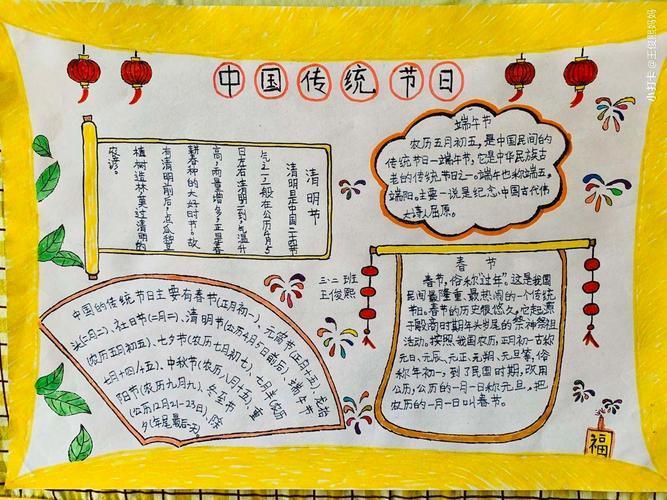 中国传统节日
清明节
清明是中国二十四节
气之一,一般在公历4月5
日左右,清明一到,气温升
高,雨量增多,正是春
耕春种的大好时节。故
有“清明前后,点瓜种豆”
植树造林,莫过清明的
农谚。
端午节
农历五月初五,是中国民间的
传统节日—端午节,它是中华民族古
老的传统节日之一。端午也称端五,
端阳。主要一说是纪念中国古代伟
大诗人屈原。
三.二班
王俊熙
中国的传统节日主要有春节(正月初一)、元宵节(正月十五)、龙抬
头(二月二)、社日节(二月二)、清明节(公历4月5日前后)、端午节
(农历五月初五)、七夕节(农历七月初七)、七月半(农历
七月十四/十五)、中秋节(农历八月十五)、重
阳节(农历九月九)、冬至节
(公历12月21-23日)、除
夕(年尾最后一天)。
春节
春节,俗称“过年”。这是我国
民间最隆重、最热闹的一个传统
节日。春节的历史很悠久,它起源
于殷商时期年头岁尾的祭神祭祖
活动。按照我国农历,正月初一古称
元日、元辰、元正、元朔、元旦等,俗
称年初一,到了民国时期,改用
公历,公历的一月一日称元旦,把
农历的一月一日叫春节。
福
小打卡@王俊熙妈妈